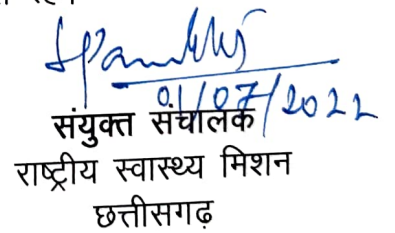 01/07/2022
संयुक्त संचालक
राष्ट्रीय स्वास्थ्य मिशन
छत्तीसगढ़